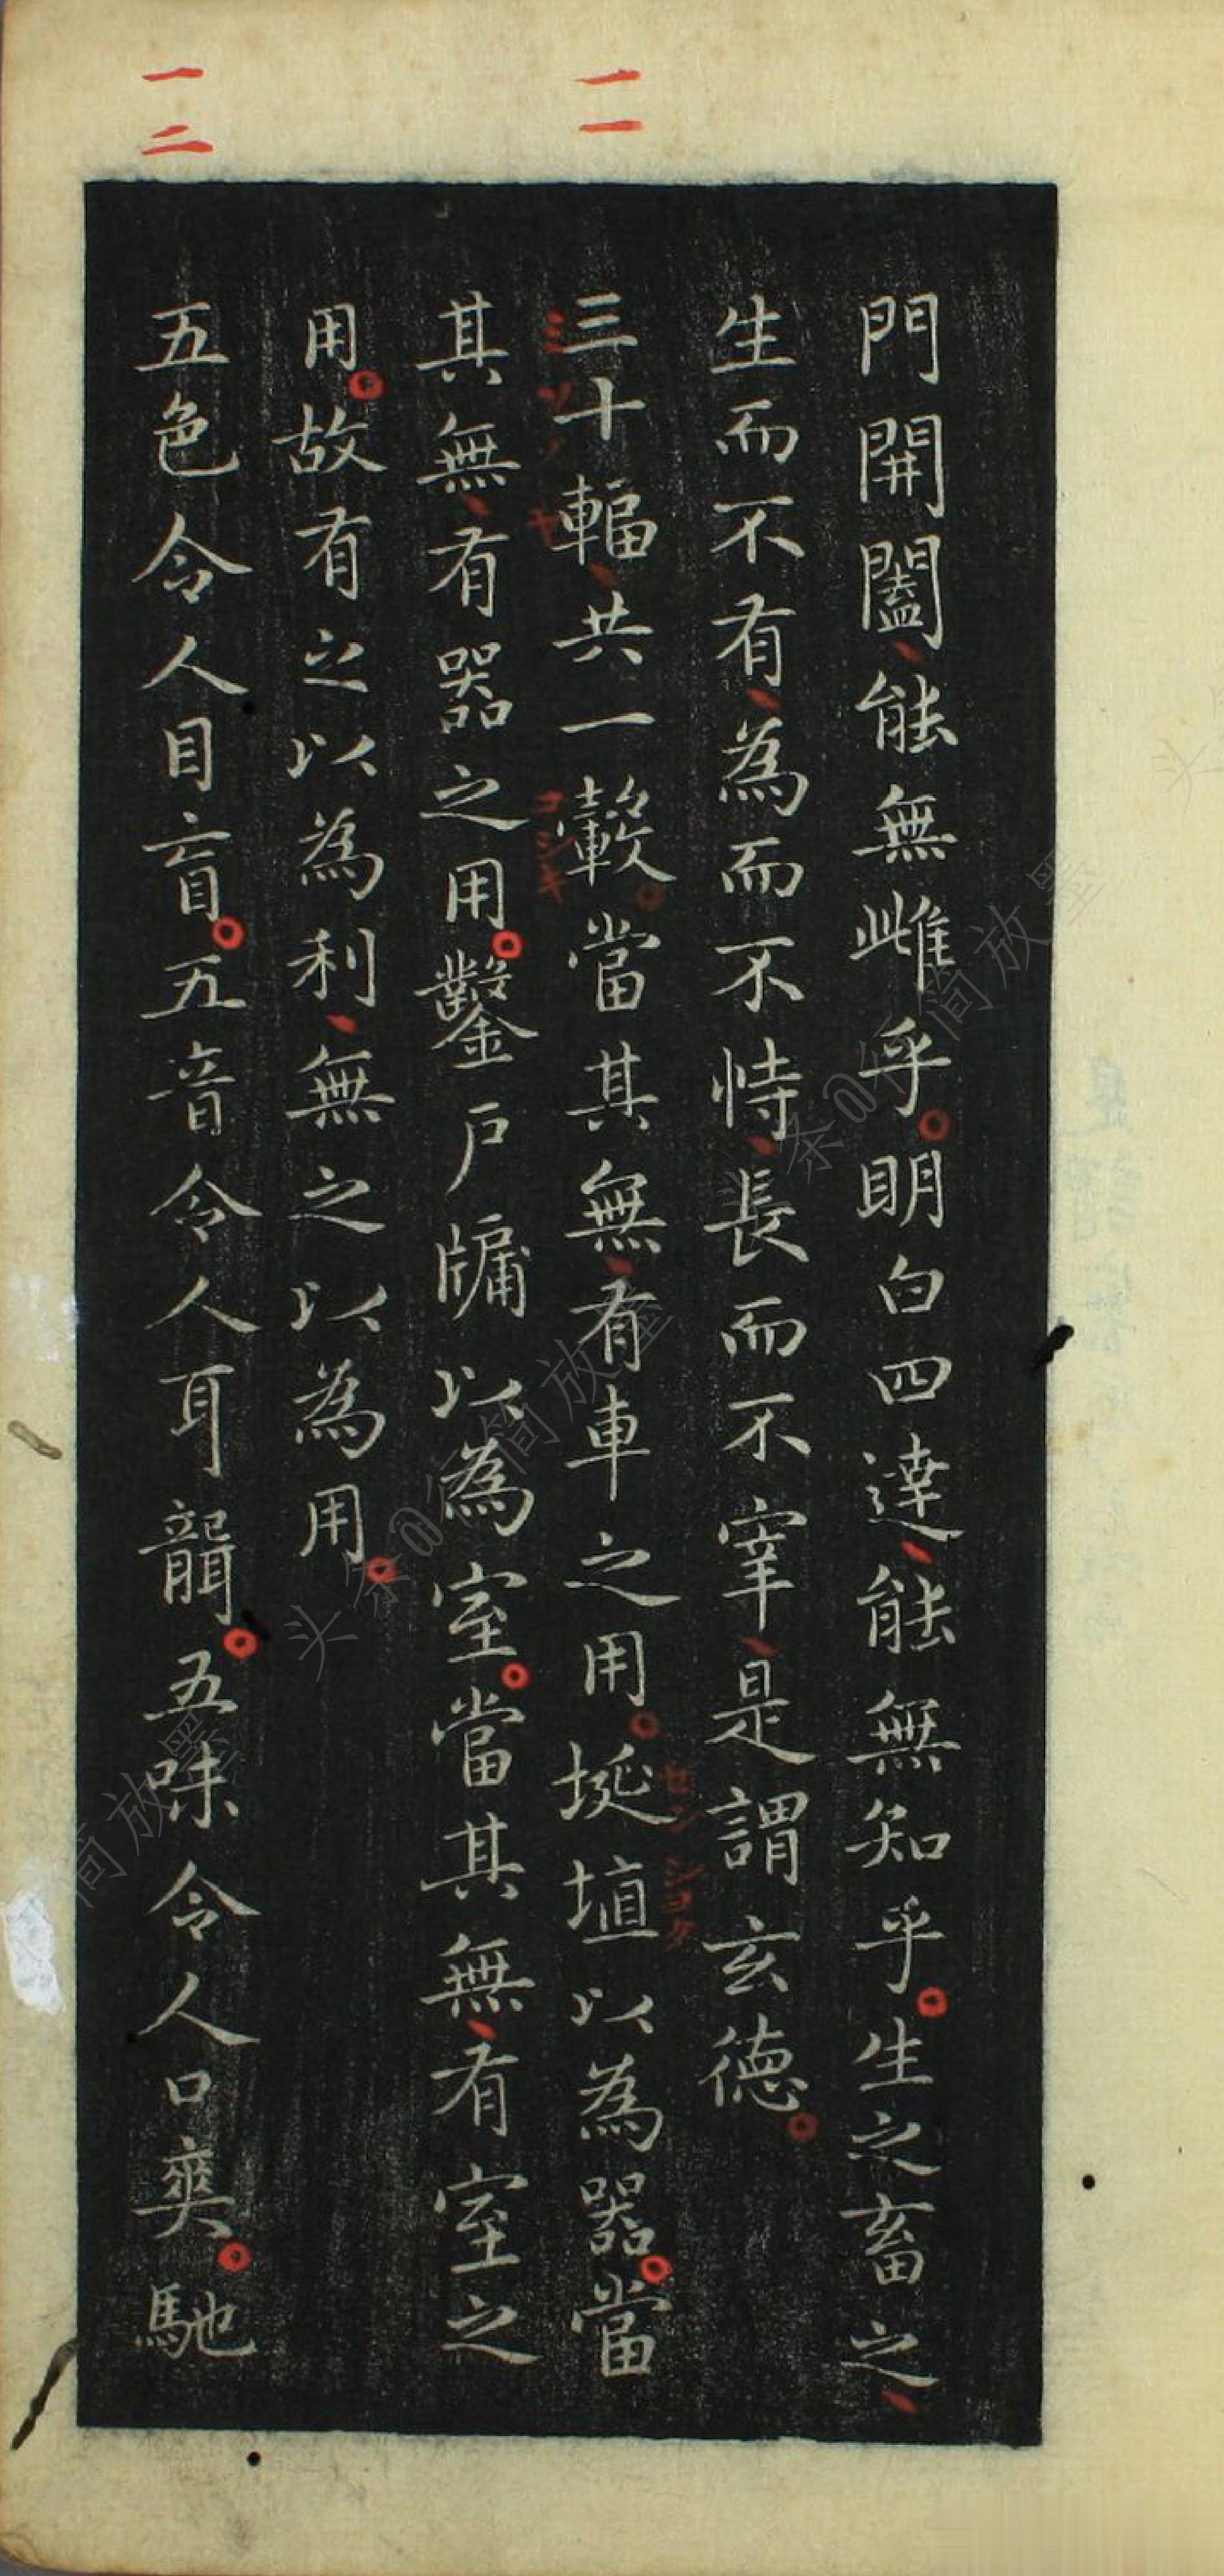 一一
一二
門開闔、能無雌乎。明白四達、能無知乎。生之畜之、
生而不有、為而不恃、長而不宰、是謂玄德。
三十輻、共一轂。當其無、有車之用。埏埴以為器。當
ミソノヤ
コシキ
センショク
其無、有器之用。鑿戶牖以為室。當其無、有室之
用。故有之以為利、無之以為用。
五色令人目盲。五音令人耳聾。五味令人口爽。馳
头条@行简放墨
头条@行简放墨
简放墨